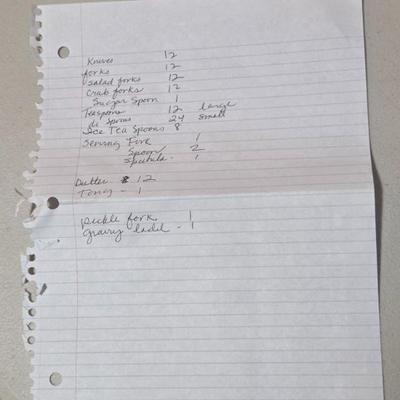 Knives 12
forks 12
salad forks 12
Crab forks 12
Sugar Spoon 1
Teaspoons 12 large
Spoons 24 small
Ice Tea Spoons 8
Serving Fork 1
Spoon 2
Spatula - 1
Butter 12
Tong - 1
pickle fork 1
gravy ladel - 1